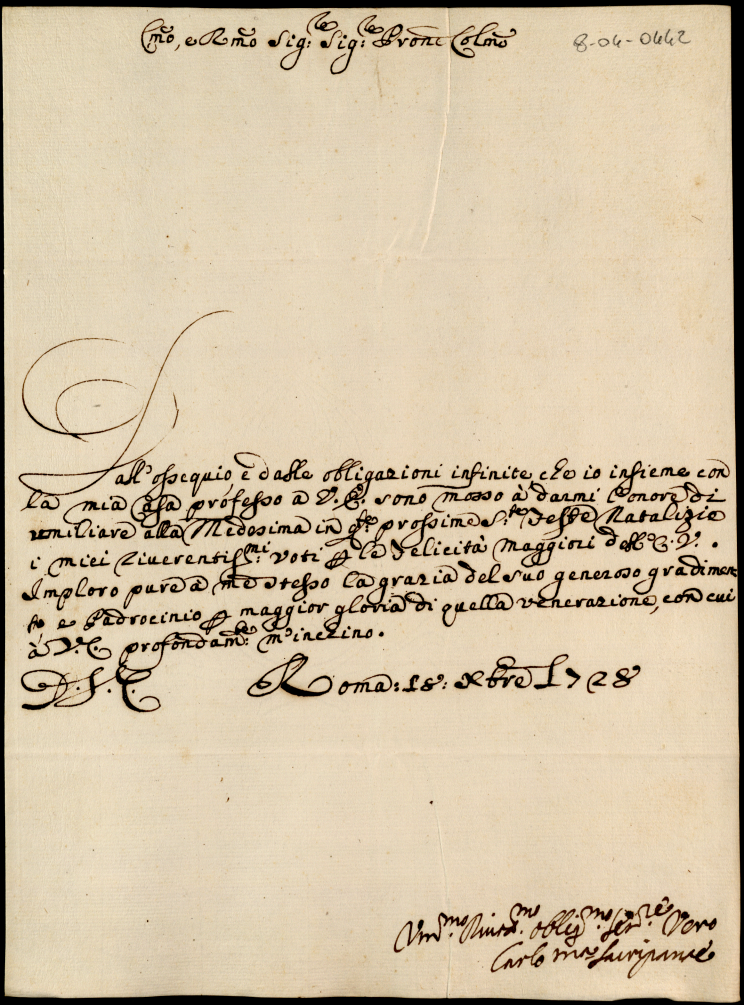 Em̃o, e Rm̃o Sig:re Sig:re Proñe Colm̃o
8-04-0442
Dall'ossequio, e dalle obligazioni infinite, che io insieme con
la mia Casa professo a V.E. sono mosso à darmi l'onore di
umiliare alla Medesima in q.ste prossime S.te Feste Natalizie
i miei riverentiss.mi voti ꝑ le felicità maggiori dell'E.V.
Imploro pure à me stesso la grazia del suo generoso gradimen
to, e Padrocinio ꝑ maggior gloria di quella venerazione, con cui
à V.E. profondam.te m'inchino.
D.V.E. Roma: 18: Xbre 1728
Um.mo Riv.mo oblig.mo Ser.re Vero
Carlo M.a Sacripante